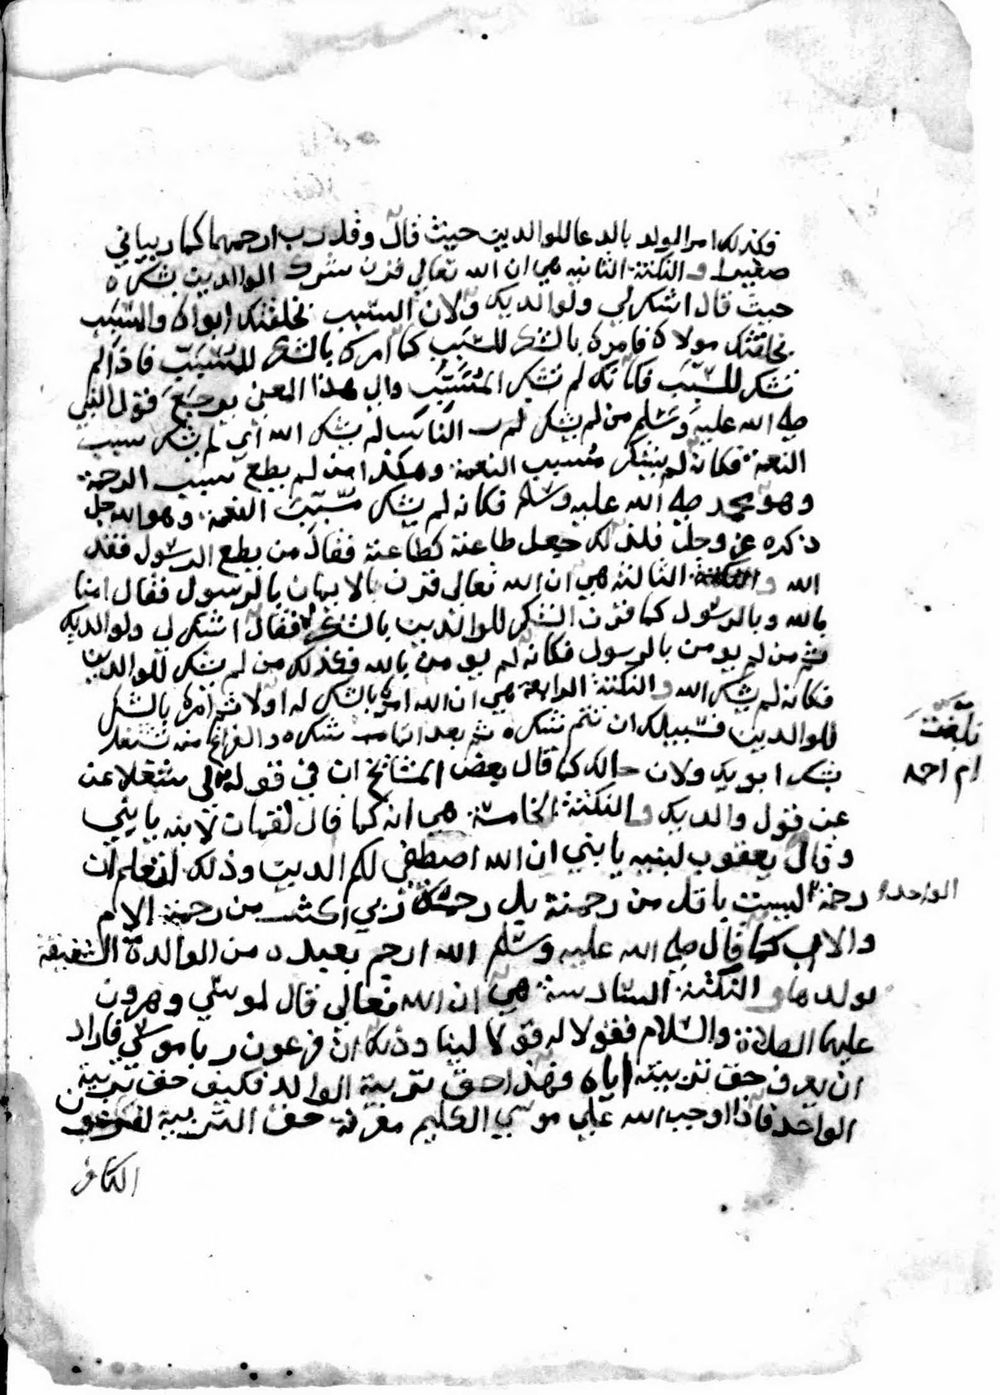 فكذلك امر الولد بالدعا للوالدين حيث قال وقل رب ارحمهما كما ربياني
صغيرا والنكتة الثانيه هي ان الله تعالى قرن شكر الوالدين بشكره
حيث قال اشكر لي ولوالديك ولان السبب بخلقتك ابواك والمسبب
بخلقتك مولاك فامرك بالشكر للسبب كما امرك بالشكر للمسبب فاذا لم
تشكر للسبب فكانك لم تشكر المسبب والى هذا المعنى يرجع قول النبي
صلى الله عليه وسلم من لم يشكر الناس لم يشكر الله اي لم يشكر سبب
النعمة فكانه لم يشكر مسبب النعمة وهكذا من لم يطع سبب الرحمة
وهو محمد صلى الله عليه وسلم فكانه لم يشكر مسبب النعمة وهو الله جل
ذكره عز وجل فلذلك جعل طاعته كطاعته فقال من يطع الرسول فقد
الله والنكتة الثالثة هي ان الله تعالى قرن بالايمان بالرسول فقال امنا
بالله وبالرسول كما قرن الشكر للوالدين بالشكر له فقال اشكر لي ولوالديك
ثم من لم يومن بالرسول فكانه لم يومن بالله فكذلك من لم يشكر للوالدين
فكانه لم يشكر الله والنكتة الرابعة هي ان الله امرك بالشكر له اولا ثم امرك بالشكر
للوالدين فسبيلك ان تتم شكره ثم بعد اتمامـ شكره والفراغ منه تشتغل
بشكر ابويك ولان ذلك كما قال بعض المشايخ ان في قوله لي شغلا عن
عن قول والديك والنكتة الخامسة هي انه كما قال لقمان لابنه يا بني
وقال يعقوب لبنيه يا بني ان الله اصطفى لكم الدين وذلك لتعلم ان
رحمة ليست باقل من رحمته بل رحمة ربي اكثر من رحمة الام
الواحد
والاب كما قال صلى الله عليه وسلم الله ارحم بعبده من الوالدة الشفيقة
بولدها والنكتة السادسة هي ان الله تعالى قال لموسى وهرون
عليهما الصلاة والسلام فقولا له قولا لينا وذلك ان فرعون ربا موسى فاراد
ان يعرف حق تربيته اياه فهذا حق تربية الوالد فكيف حق تربية
الواحد فاذا اوجب الله على موسى الكليم معرفة حق التربية لفرعون
الكافر
ام احمد